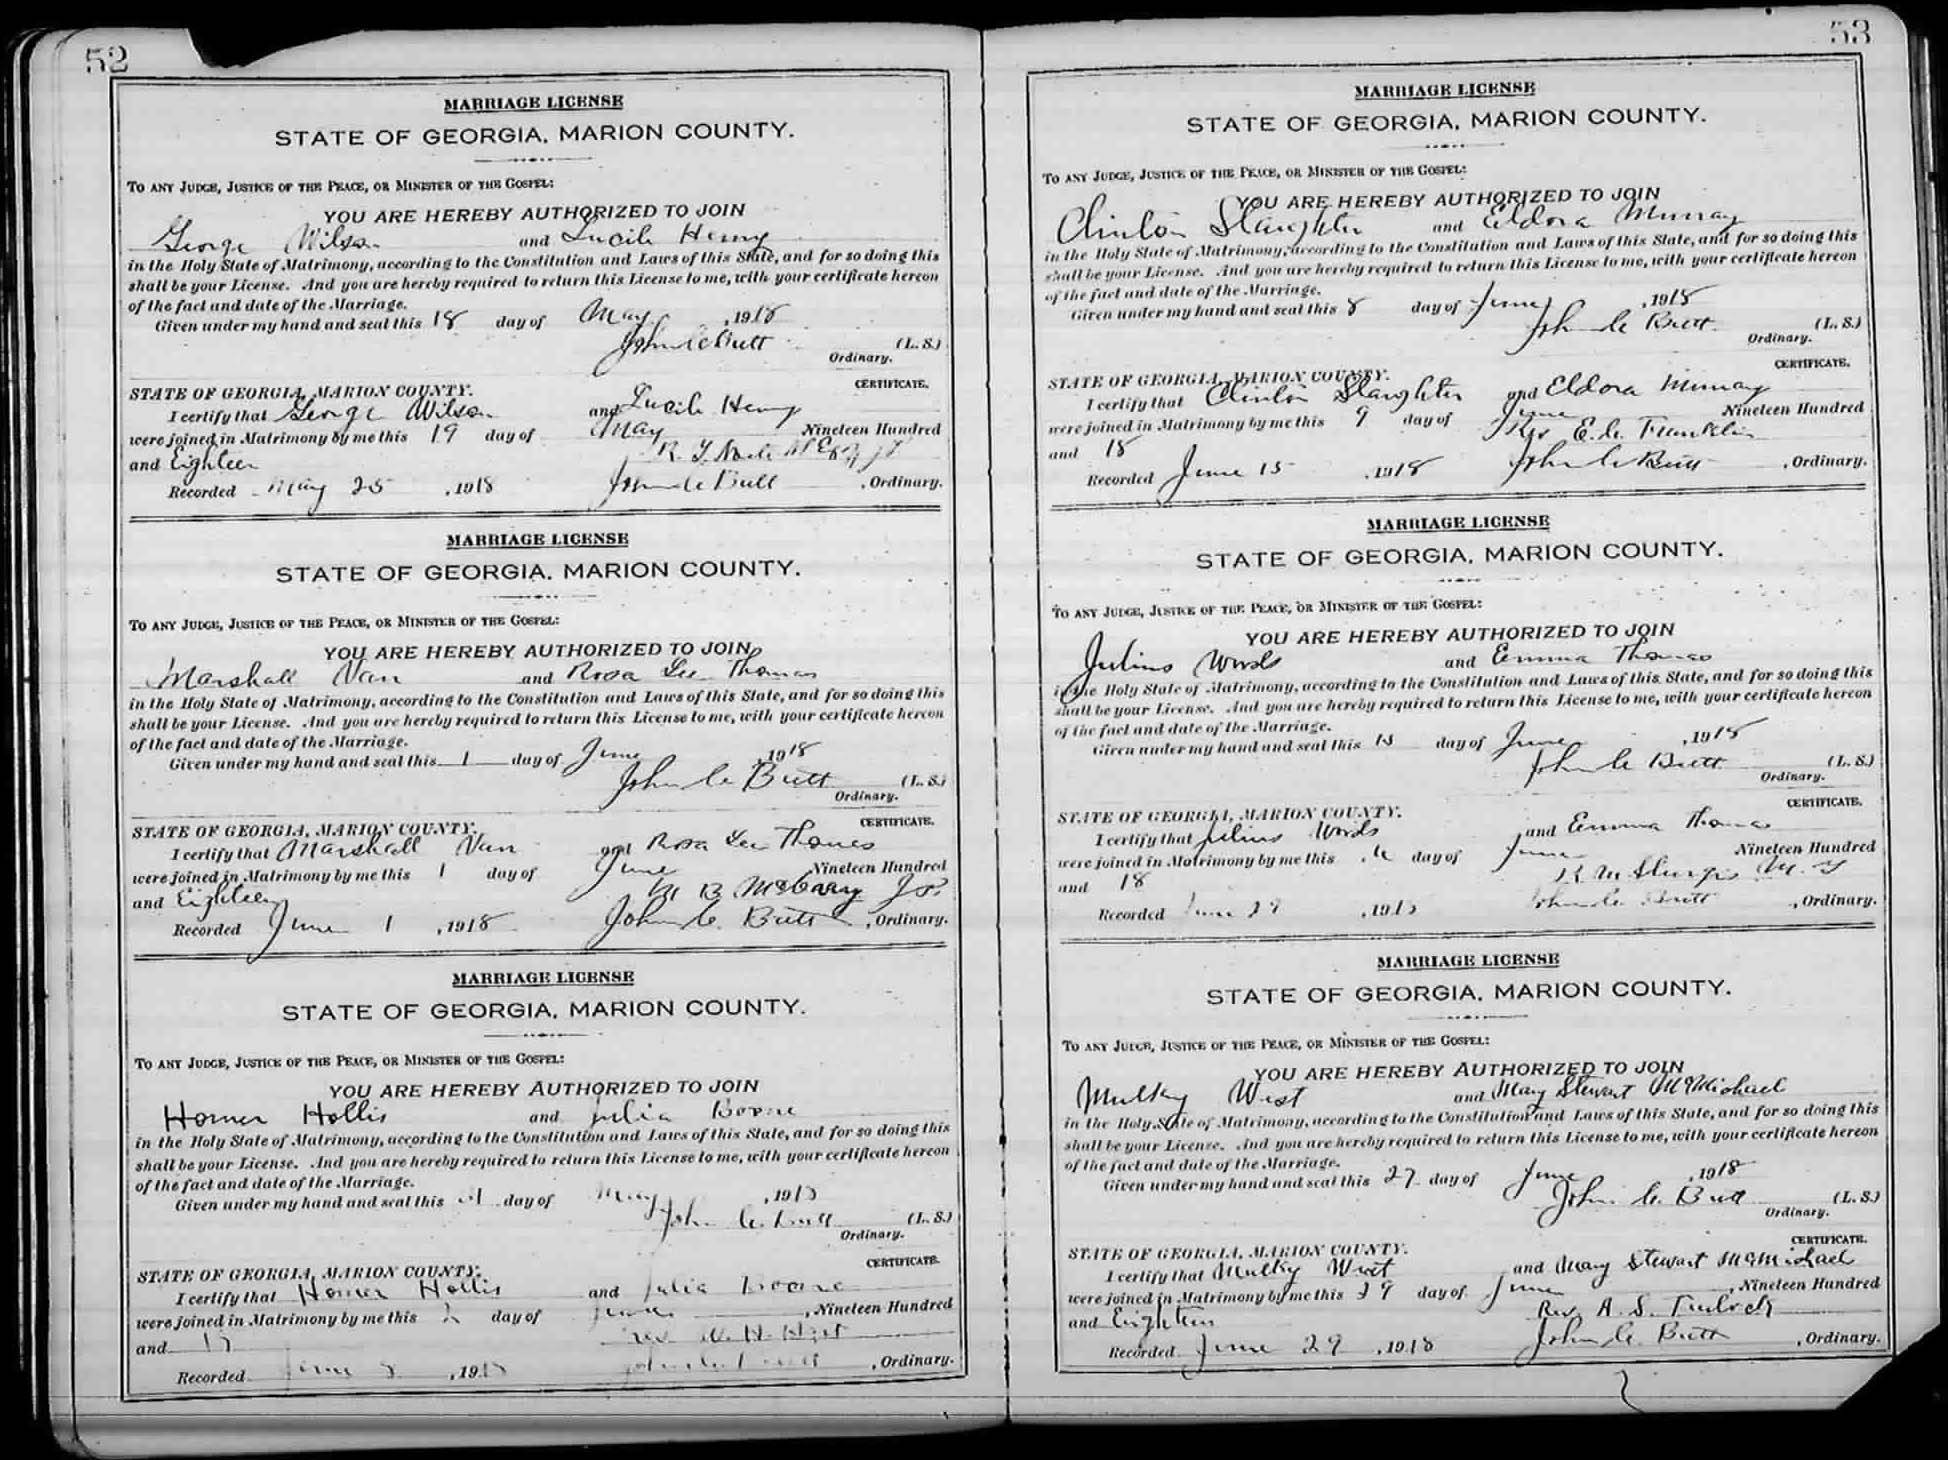 52
MARRIAGE LICENSE
STATE OF GEORGIA, MARION COUNTY.
TO ANY JUDGE, JUSTICE OF THE PEACE, OR MINISTER OF THE GOSPEL:
YOU ARE HEREBY AUTHORIZED TO JOIN
George Wilson and Lucile Henry
in the Holy State of Matrimony, according to the Constitution and Laws of this State, and for so doing this
shall be your License. And you are hereby required to return this License to me, with your certificate hereon
of the fact and date of the Marriage.
Given under my hand and seal this 18 day of May, 1918
John C Butt (L. S.)
Ordinary.
CERTIFICATE.
STATE OF GEORGIA, MARION COUNTY.
I certify that George Wilson and Lucile Henry
were joined in Matrimony by me this 19 day of May Nineteen Hundred
and Eighteen R. T.
Recorded May 25, 1918 John C Butt, Ordinary.
MARRIAGE LICENSE
STATE OF GEORGIA, MARION COUNTY.
TO ANY JUDGE, JUSTICE OF THE PEACE, OR MINISTER OF THE GOSPEL:
YOU ARE HEREBY AUTHORIZED TO JOIN
Marshall Van and Rosa Lee Thomas
in the Holy State of Matrimony, according to the Constitution and Laws of this State, and for so doing this
shall be your License. And you are hereby required to return this License to me, with your certificate hereon
of the fact and date of the Marriage.
Given under my hand and seal this 1 day of June, 1918
John C. Butt (L. S.)
Ordinary.
CERTIFICATE.
STATE OF GEORGIA, MARION COUNTY.
I certify that Marshall Van and Rosa Lee Thomas
were joined in Matrimony by me this 1 day of June Nineteen Hundred
and Eighteen M B McCary J P
Recorded June 1, 1918 John C. Butt, Ordinary.
MARRIAGE LICENSE
STATE OF GEORGIA, MARION COUNTY.
TO ANY JUDGE, JUSTICE OF THE PEACE, OR MINISTER OF THE GOSPEL:
YOU ARE HEREBY AUTHORIZED TO JOIN
Homer Hollis and Julia Boone
in the Holy State of Matrimony, according to the Constitution and Laws of this State, and for so doing this
shall be your License. And you are hereby required to return this License to me, with your certificate hereon
of the fact and date of the Marriage.
Given under my hand and seal this day of May, 191
John C. Butt (L. S.)
Ordinary.
CERTIFICATE.
STATE OF GEORGIA, MARION COUNTY.
I certify that Homer Hollis and Julia Boone
were joined in Matrimony by me this 2 day of June, Nineteen Hundred
and Rev
Recorded June, 191 John C. Butt, Ordinary.
53
MARRIAGE LICENSE
STATE OF GEORGIA, MARION COUNTY.
TO ANY JUDGE, JUSTICE OF THE PEACE, OR MINISTER OF THE GOSPEL:
YOU ARE HEREBY AUTHORIZED TO JOIN
Clinton Slaughter and Eldora Murray
in the Holy State of Matrimony, according to the Constitution and Laws of this State, and for so doing this
shall be your License. And you are hereby required to return this License to me, with your certificate hereon
of the fact and date of the Marriage.
Given under my hand and seal this 8 day of June, 1918
John C Butt (L. S.)
Ordinary.
CERTIFICATE.
STATE OF GEORGIA, MARION COUNTY.
I certify that Clinton Slaughter and Eldora Murray
were joined in Matrimony by me this 9 day of June Nineteen Hundred
and 18 Rev E. C. Franklin
Recorded June 15, 1918 John C Butt, Ordinary.
MARRIAGE LICENSE
STATE OF GEORGIA, MARION COUNTY.
TO ANY JUDGE, JUSTICE OF THE PEACE, OR MINISTER OF THE GOSPEL:
YOU ARE HEREBY AUTHORIZED TO JOIN
Julius Words and Emma Thomas
in the Holy State of Matrimony, according to the Constitution and Laws of this State, and for so doing this
shall be your License. And you are hereby required to return this License to me, with your certificate hereon
of the fact and date of the Marriage.
Given under my hand and seal this day of June, 1918
John C Butt (L. S.)
Ordinary.
CERTIFICATE.
STATE OF GEORGIA, MARION COUNTY.
I certify that Julius Words and Emma Thomas
were joined in Matrimony by me this day of June Nineteen Hundred
and 18 R M Sturgis M. G
Recorded June 29, 191 John C. Butt, Ordinary.
MARRIAGE LICENSE
STATE OF GEORGIA, MARION COUNTY.
TO ANY JUDGE, JUSTICE OF THE PEACE, OR MINISTER OF THE GOSPEL:
YOU ARE HEREBY AUTHORIZED TO JOIN
Mulky West and Mary Stewart McMichael
in the Holy State of Matrimony, according to the Constitution and Laws of this State, and for so doing this
shall be your License. And you are hereby required to return this License to me, with your certificate hereon
of the fact and date of the Marriage.
Given under my hand and seal this 27 day of June, 1918
John C. Butt (L. S.)
Ordinary.
CERTIFICATE.
STATE OF GEORGIA, MARION COUNTY.
I certify that Mulky West and Mary Stewart McMichael
were joined in Matrimony by me this 29 day of June, Nineteen Hundred
and Eighteen Rev. A. S.
Recorded June 29, 1918 John C. Butt, Ordinary.